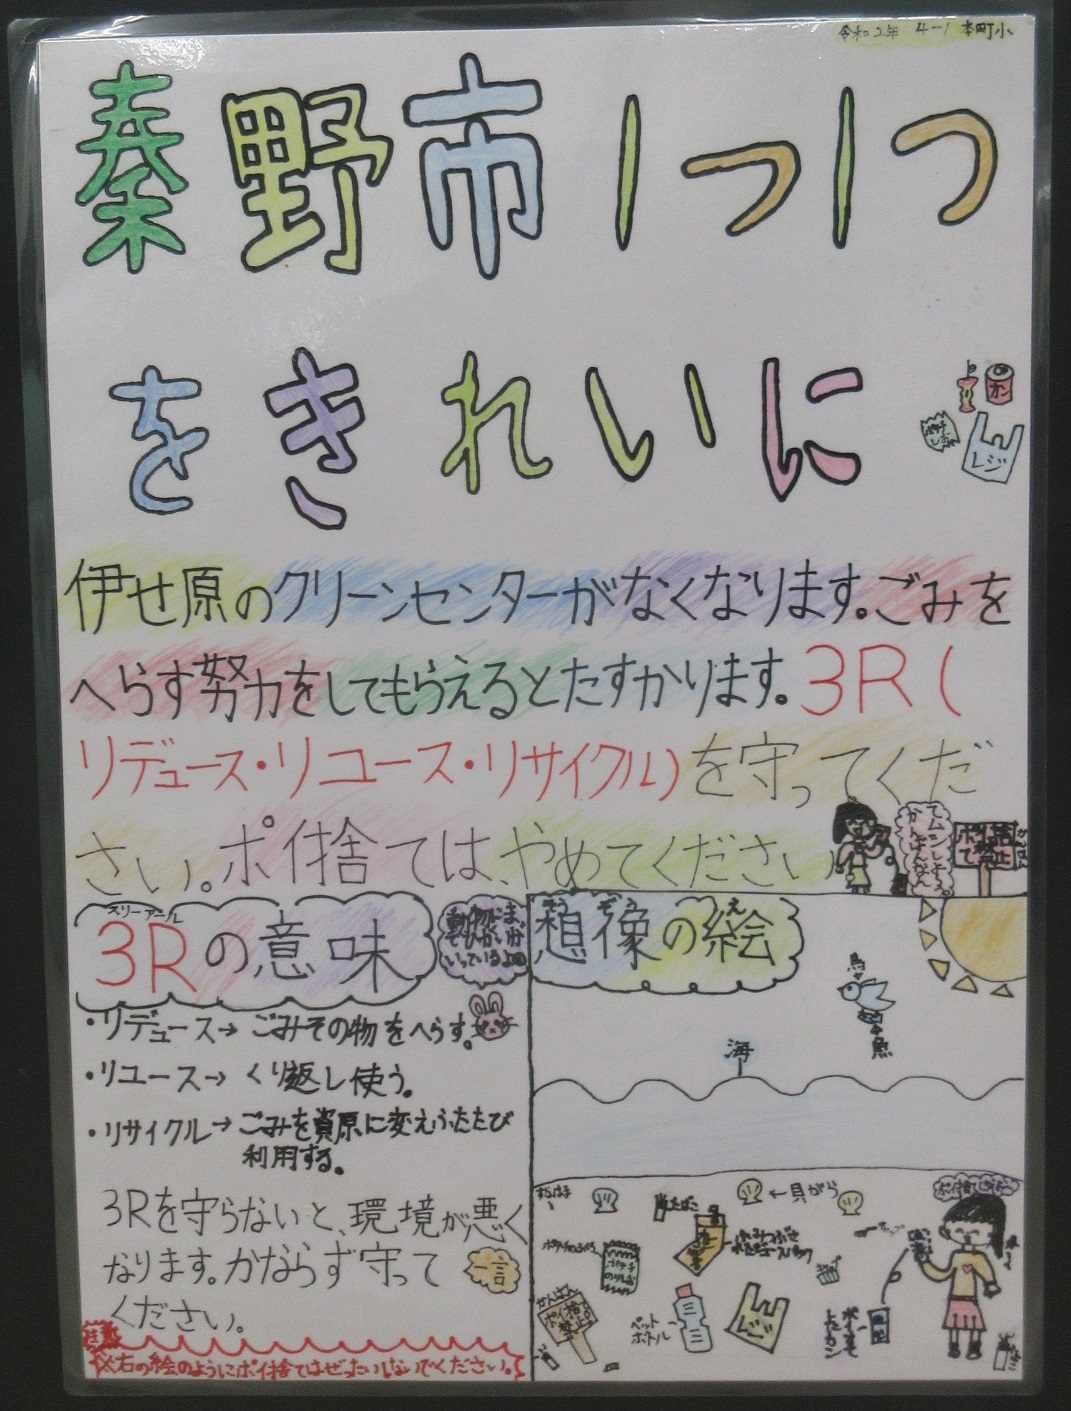 令和2年 4-1 本町小
秦野市1つ1つ
をきれいに
カン
レジ
伊せ原のクリーンセンターがなくなります。ごみを
へらす努力をしてもらえるとたすかります。3R(
リデュース・リユース・リサイクル)を守ってくだ
さい。ポイ捨ては、やめてください
ポイ捨て禁止
スリーアール
3Rの意味
・リデュース→ごみその物をへらす。
・リユース→くり返し使う。
・リサイクル→ごみを資原に変えふたたび
利用する。
3Rを守らないと、環境が悪く
なります。かならず守って
ください。
一言
注意
※右の絵のようにポイ捨てはぜったいしないでください。
そうぞう え
想像の絵
鳥
魚
海
すなはま
たばこ
←貝がら
かんばん
ポイ捨て禁止
ペット
ボトル
レジ